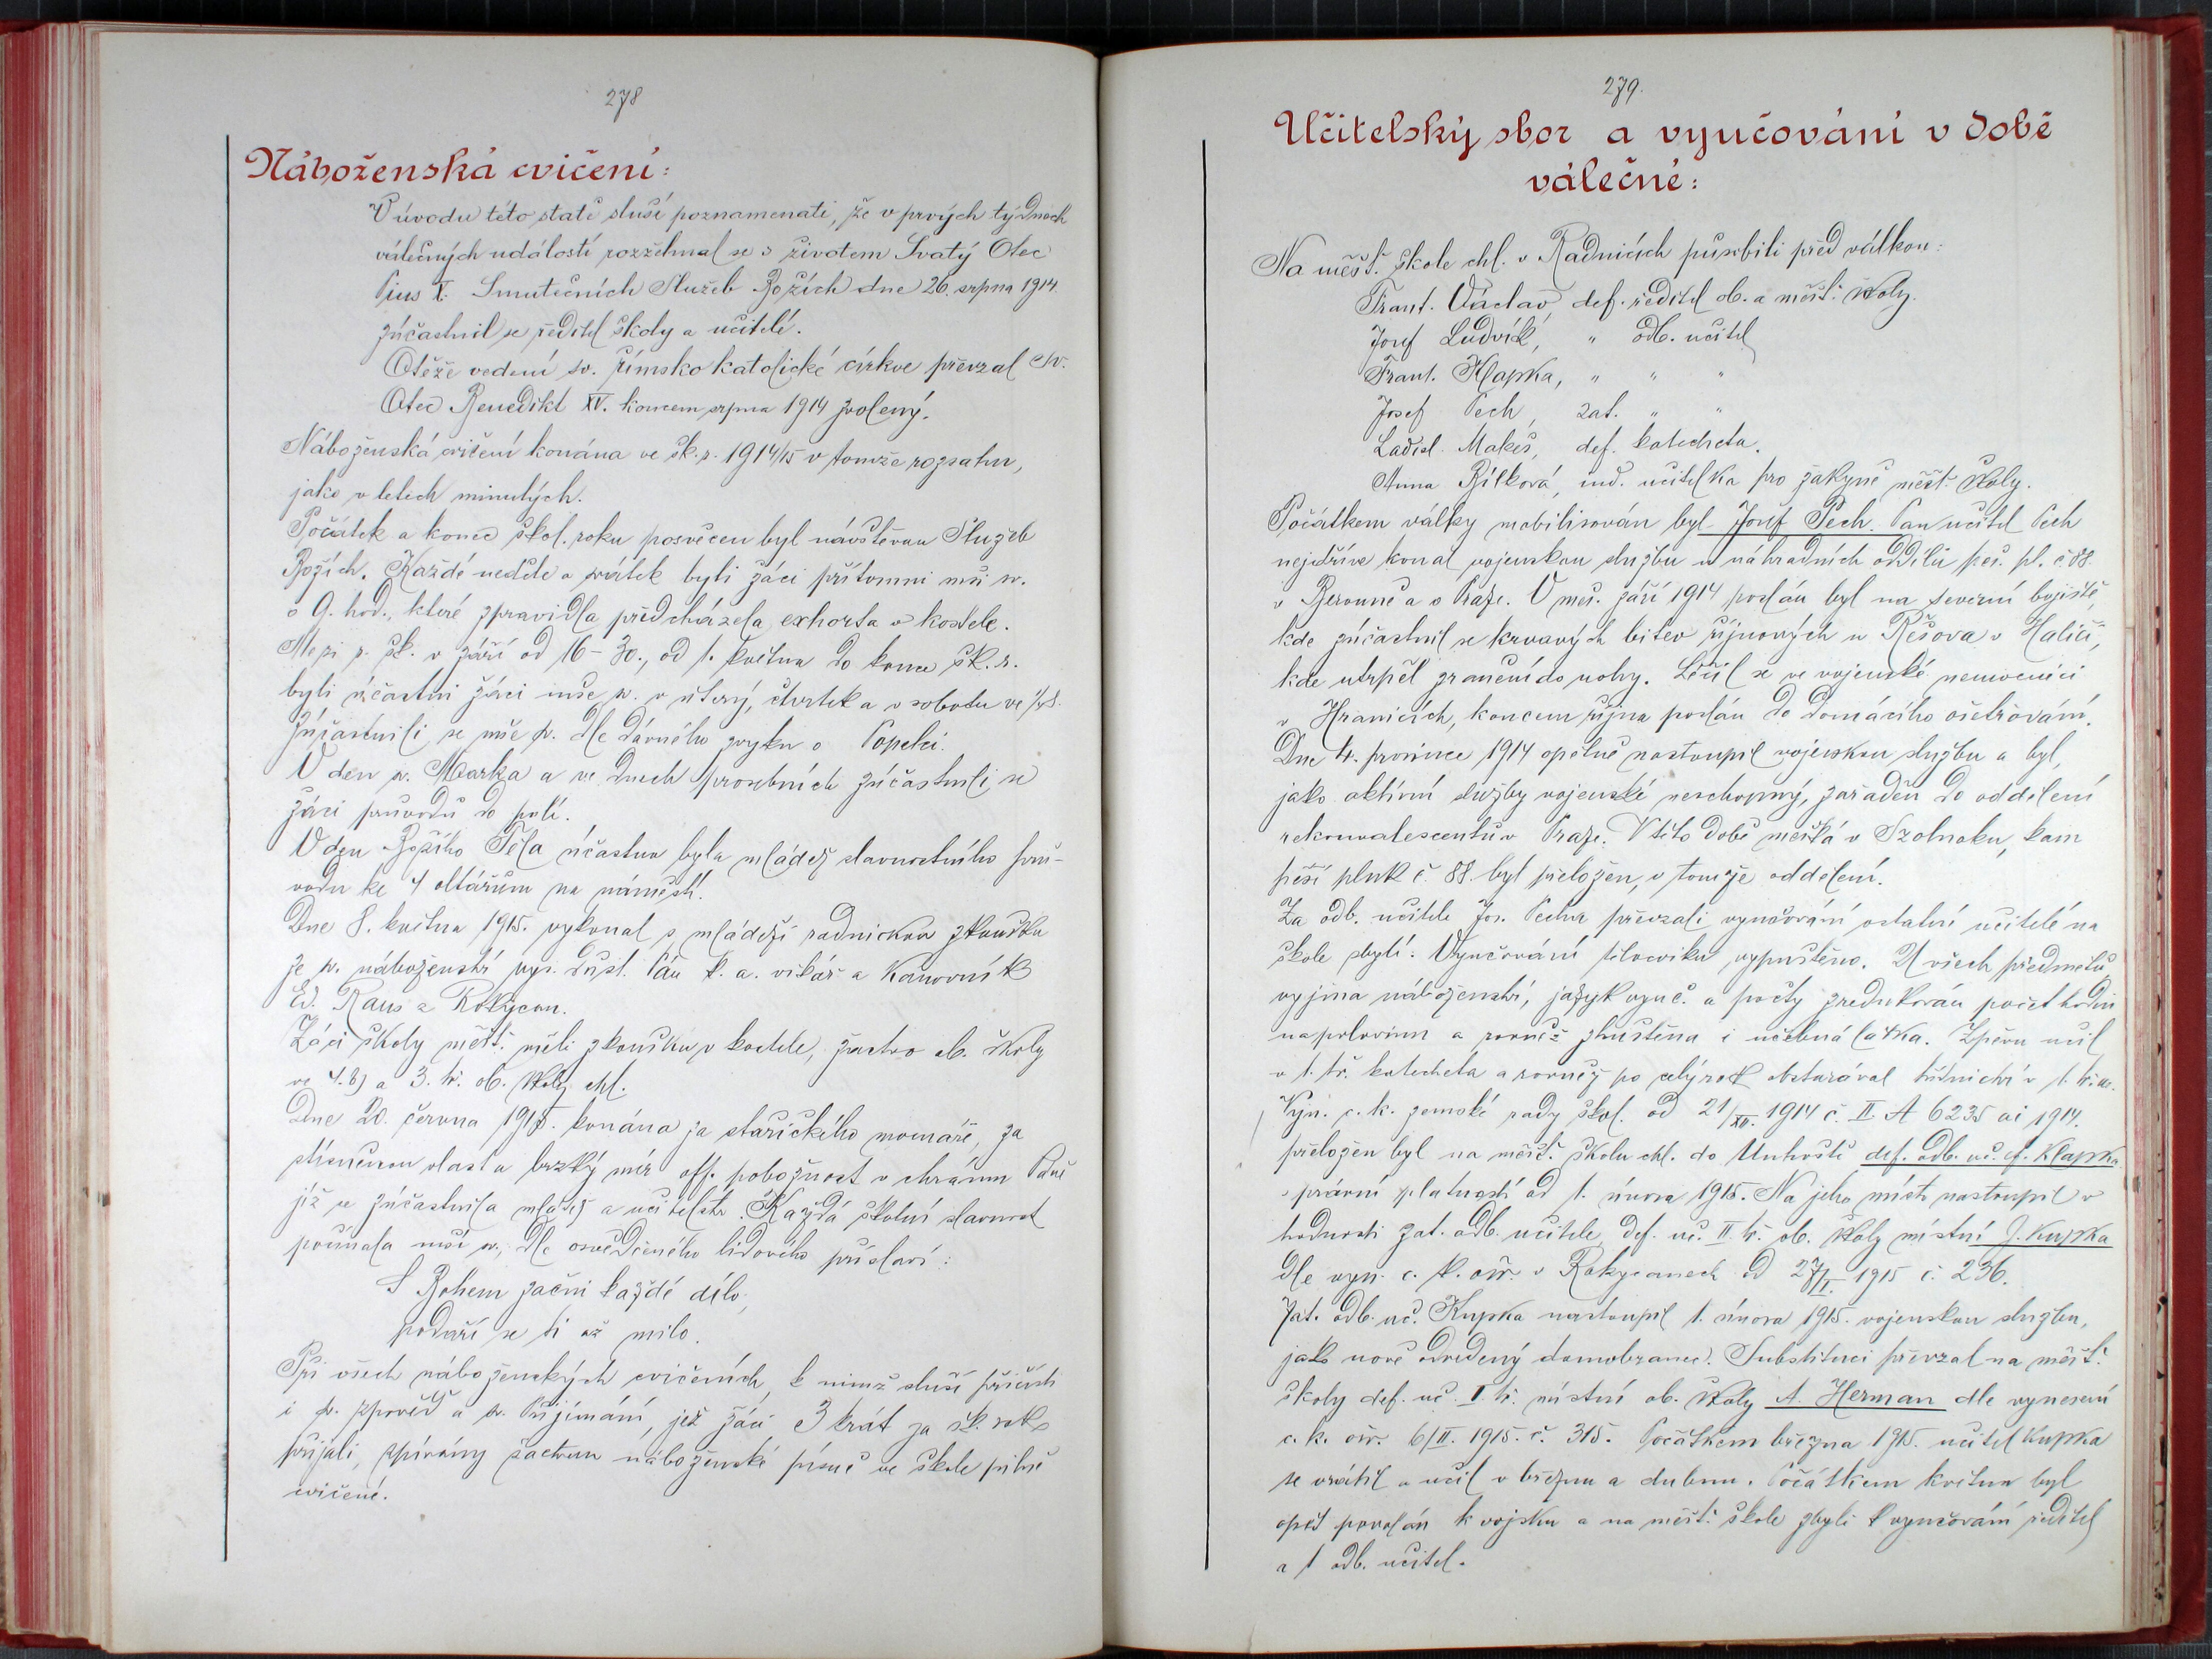 278
Náboženská cvičení:
V úvodu této statě sluší poznamenati, že v prvých týdnech
válečných událostí rozžehnal se s životem Svatý Otec
Pius X. Smutečních Služeb Božích dne 26. srpna 1914
zúčastnil se ředitel školy a učitelé.
Otěže vedení sv. římsko katolické církve převzal Sv.
Otec Benedikt XV. koncem srpna 1914 zvolený.
Náboženská cvičení konána ve šk. r. 1914/15 v tomže rozsahu,
jako v letech minulých.
Počátek a konec škol. roku posvěcen byl návštěvou Služeb
Božích. Každé neděle a svátek byli žáci přítomni mši sv.
o 9. hod., které zpravidla předcházela exhorta v kostele.
Mezi r. šk. v září od 16-30., od 1. května do konce šk. r.
byli účastni žáci mše sv. v úterý, čtvrtek a v sobotu ve 1/2 8.
Zúčastnili se mše sv. dle dávného zvyku o Popelci.
V den sv. Marka a ve dnech prosebních zúčastnili se
žáci průvodů do polí.
V den Božího Těla účastna byla mládež slavnostního prů-
vodu ke 4 oltářům na náměstí.
Dne 8. května 1915. vykonal s mládeží radnickou zkoušku
ze sv. náboženství vys. důst. Pán k. a. vikář a kanovník
Ed. Raus z Rokycan.
Žáci školy měšť. měli zkoušku v kostele, žactvo ob. školy
ve 4. B) a 3. tř. ob. školy chl.
Dne 20. června 1915. konána za stařičkého mocnáře, za
stísněnou vlast a brzký mír off. pobožnost v chrámu Páně
již se zúčastnila mládež a učitelstv. Každá školní slavnost
počínala mší sv., dle osvědčeného lidového přísloví:
S Bohem začni každé dílo,
podaří se ti až milo.
Při všech náboženských cvičeních, k nimž sluší přičísti
i sv. zpověď a sv. Přijímání, jež žáci 3 krát za šk. rok
přijali, zpívány žactvem náboženské písně ve škole pilně
cvičené.
279.
Učitelský sbor a vyučování v době
válečné:
Na měšť. škole chl. v Radnicích působili před válkou:
Frant. Václav, def. ředitel ob. a měšť. školy.
Josef Ludvík, " odb. učitel
Frant. Klapka, " " "
Josef Pech, zat. " "
Ladisl. Makeš, def. katecheta.
Anna Bílková, ind. učitelka pro žákyně měšť. školy.
Počátkem války mobilisován byl Josef Pech. Pan učitel Pech
nejdříve konal vojenskou službu u náhradních oddílů pěš. pl. č. 88.
v Berouně a v Praze. V měs. září 1914 poslán byl na severní bojiště,
kde zúčastnil se krvavých bitev říjnových u Řešova v Haliči,
kde utrpěl zranění do nohy. Léčil se ve vojenské nemocnici
v Hranicích, koncem října poslán do domácího ošetřování.
Dne 4. prosince 1914 opětně nastoupil vojenskou službu a byl,
jako aktivní služby vojenské neschopný, zařaděn do oddělení
rekonvalescentů v Praze. V této době meškа́ v Szolnoku, kam
pěší pluk č. 88. byl přeložen, v tomže oddělení.
Za odb. učitele Jos. Pecha převzali vyučování ostatní učitelé na
škole zbylí. Vyučování tělocviku vypuštěno. U všech předmětů
vyjma náboženství, jazyk vyuč. a počty zredukován počet hodin
na polovinu a rovněž zhuštěna i učebná látka. Zpěvu učil
v 1. tř. katecheta a rovněž po celý rok obstarával třídnictví v 1. tř. m.
Vyn. c. k. zemské rady škol. od 21/XII. 1914 č. II. A 6235 ai 1914.
přeložen byl na měšť. školu chl. do Unhoště def. odb. uč. F. Klapka
s právní platností od 1. února 1915. Na jeho místo nastoupil v
hodnosti zat. odb. učitele, def. uč. II. tř. ob. školy místní J. Kupka
dle vyn. c. k. ošr. v Rokycanech od 27/I. 1915 č. 236.
Zat. odb. uč. Kupka nastoupil 1. února 1915. vojenskou službu,
jako nově odvedený domobranec. Substituci převzal na měšť.
školy def. uč. II tř. místní ob. školy A. Herman dle vynesení
c. k. ošr. 6/II. 1915. č. 315. Počátkem března 1915. učitel Kupka
se vrátil a učil v březnu a dubnu. Počátkem května byl
opět povolán k vojsku a na měšť. škole zbyli k vyučování ředitel
a 1 odb. učitel.